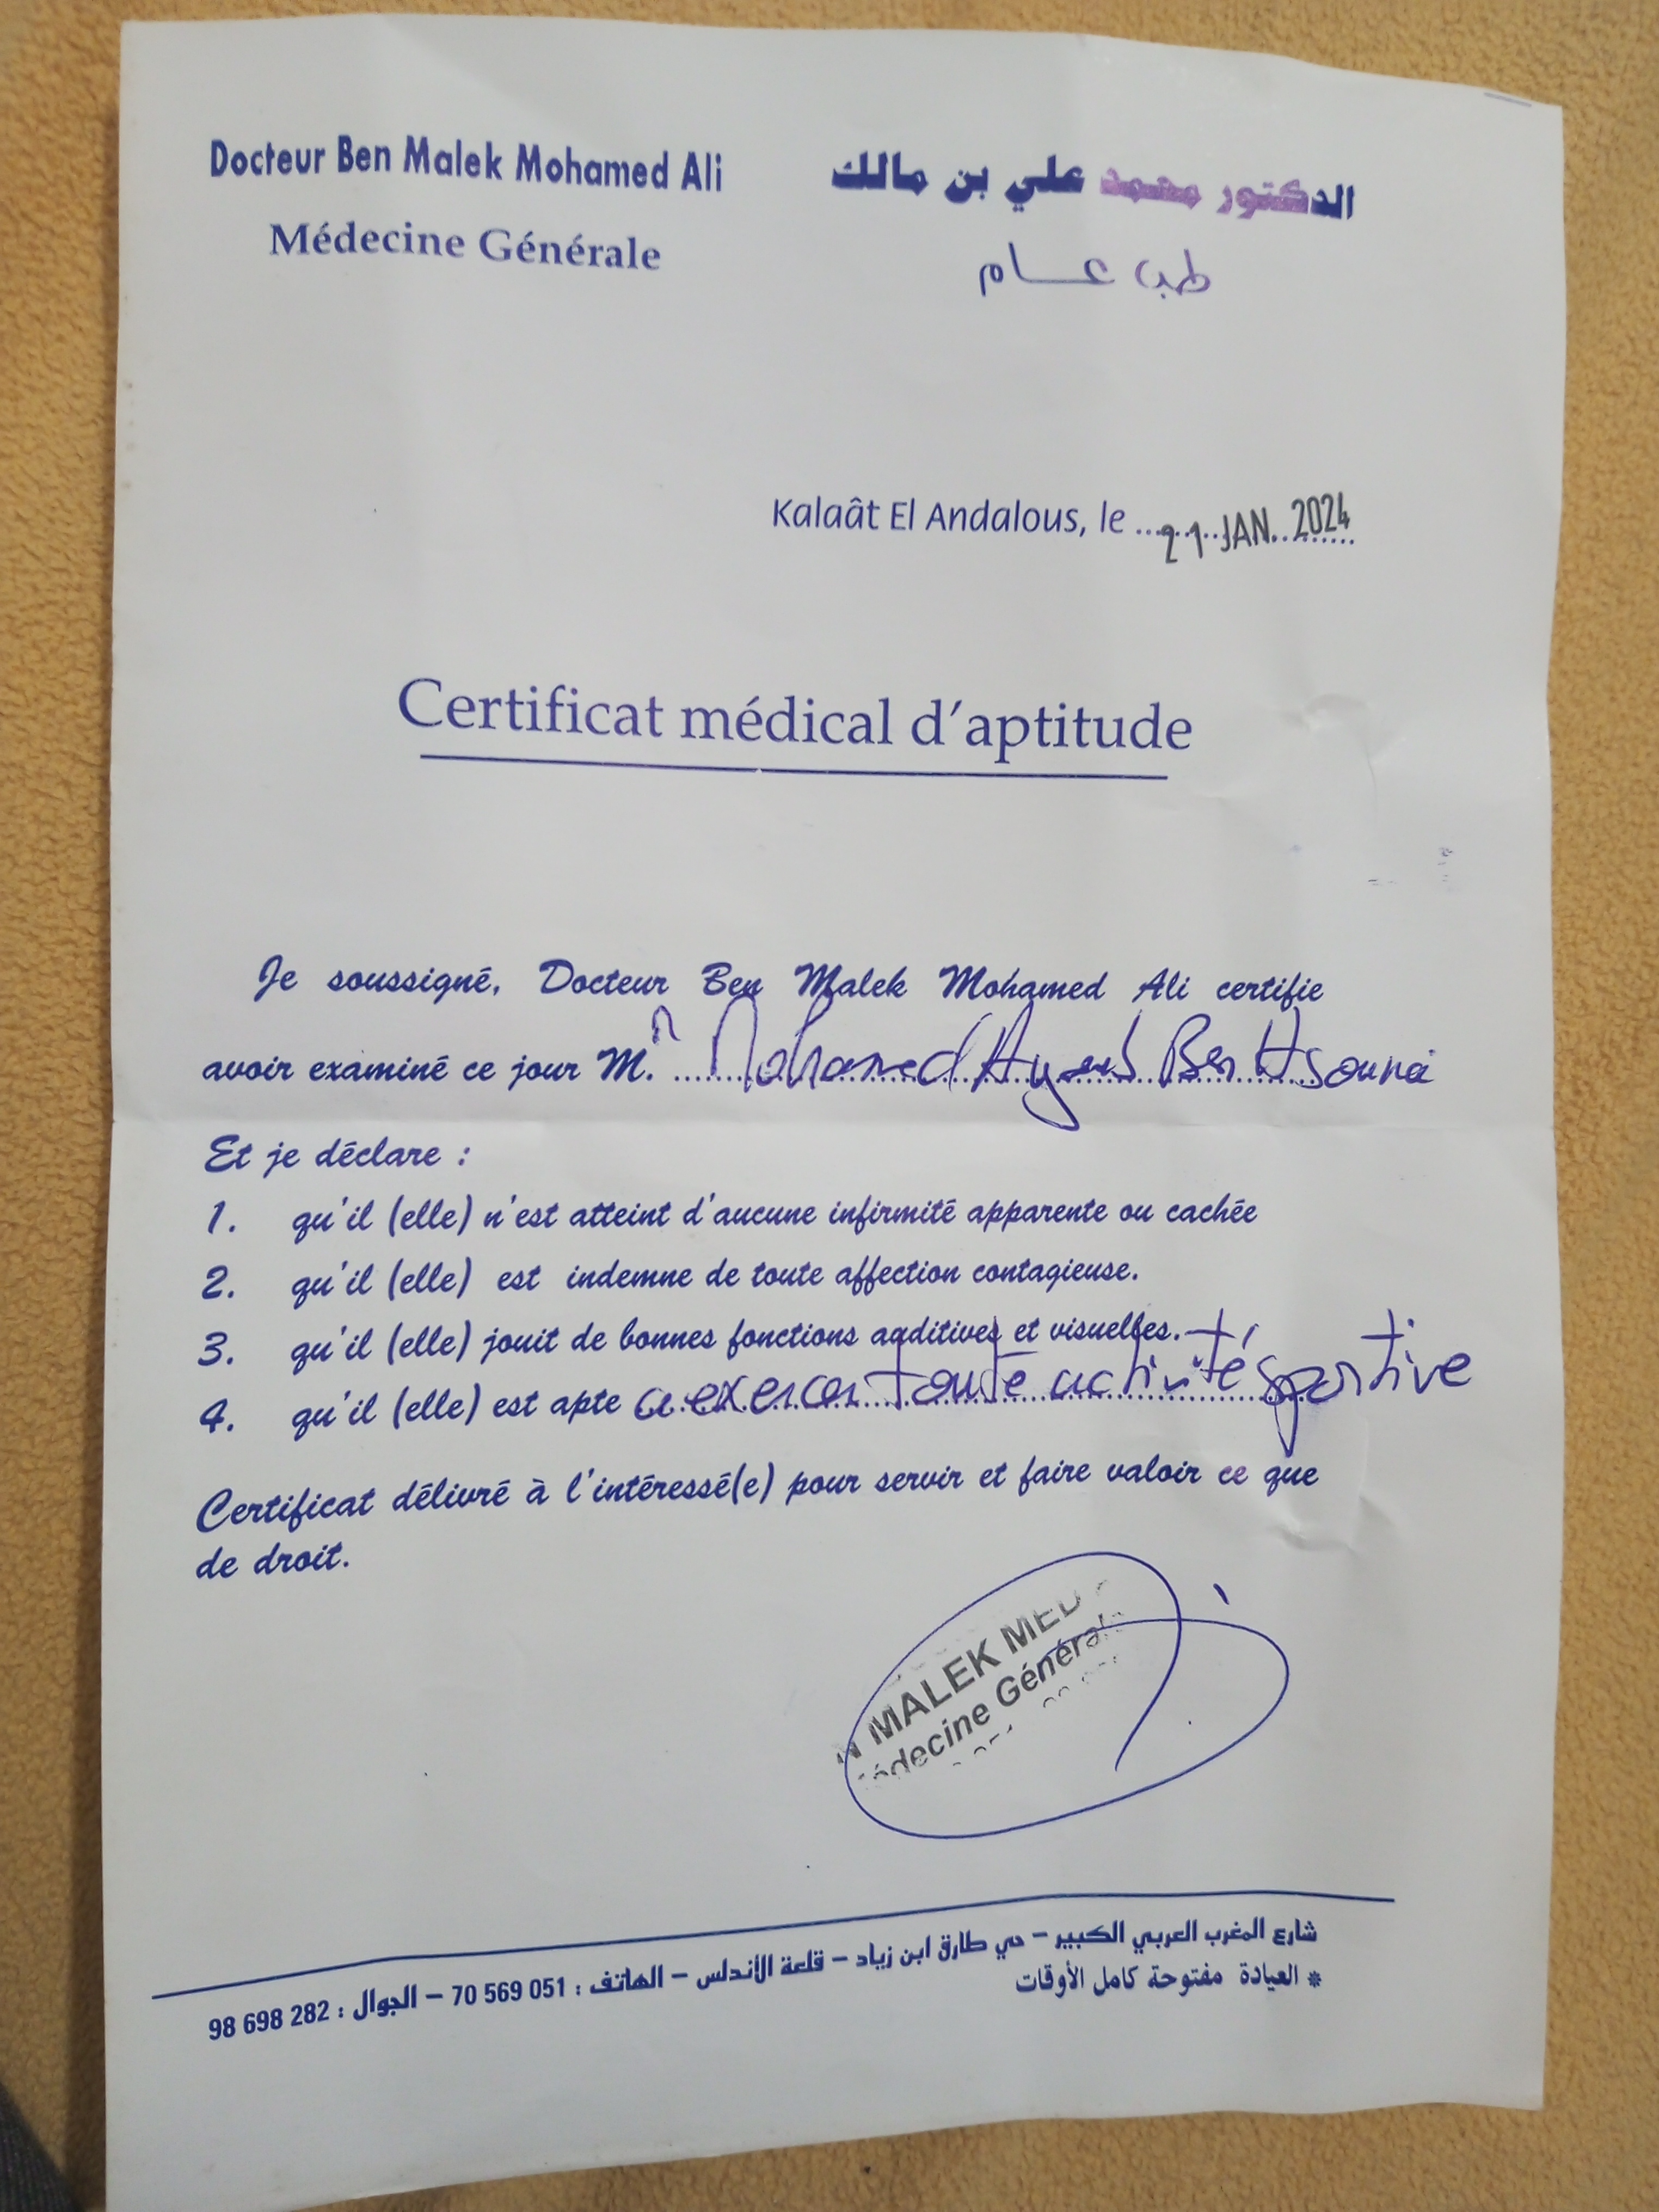 Docteur Ben Malek Mohamed Ali
Médecine Générale
الدكتور محمد علي بن مالك
طب عام
Kalaât El Andalous, le 21 JAN. 2024
Certificat médical d'aptitude
Je soussigné, Docteur Ben Malek Mohamed Ali certifie
avoir examiné ce jour M. Mohamed Ben Hsouna
Et je déclare :
1. qu'il (elle) n'est atteint d'aucune infirmité apparente ou cachée
2. qu'il (elle) est indemne de toute affection contagieuse.
3. qu'il (elle) jouit de bonnes fonctions auditives et visuelles.
4. qu'il (elle) est apte a exercer toute activité sportive
Certificat délivré à l'intéressé(e) pour servir et faire valoir ce que
de droit.
MALEK MED
Médecine Générale
شارع المغرب العربي الكبير – حي طارق ابن زياد – قلعة الأندلس – الهاتف : 70 569 051 – الجوال : 98 698 282
* العيادة مفتوحة كامل الأوقات